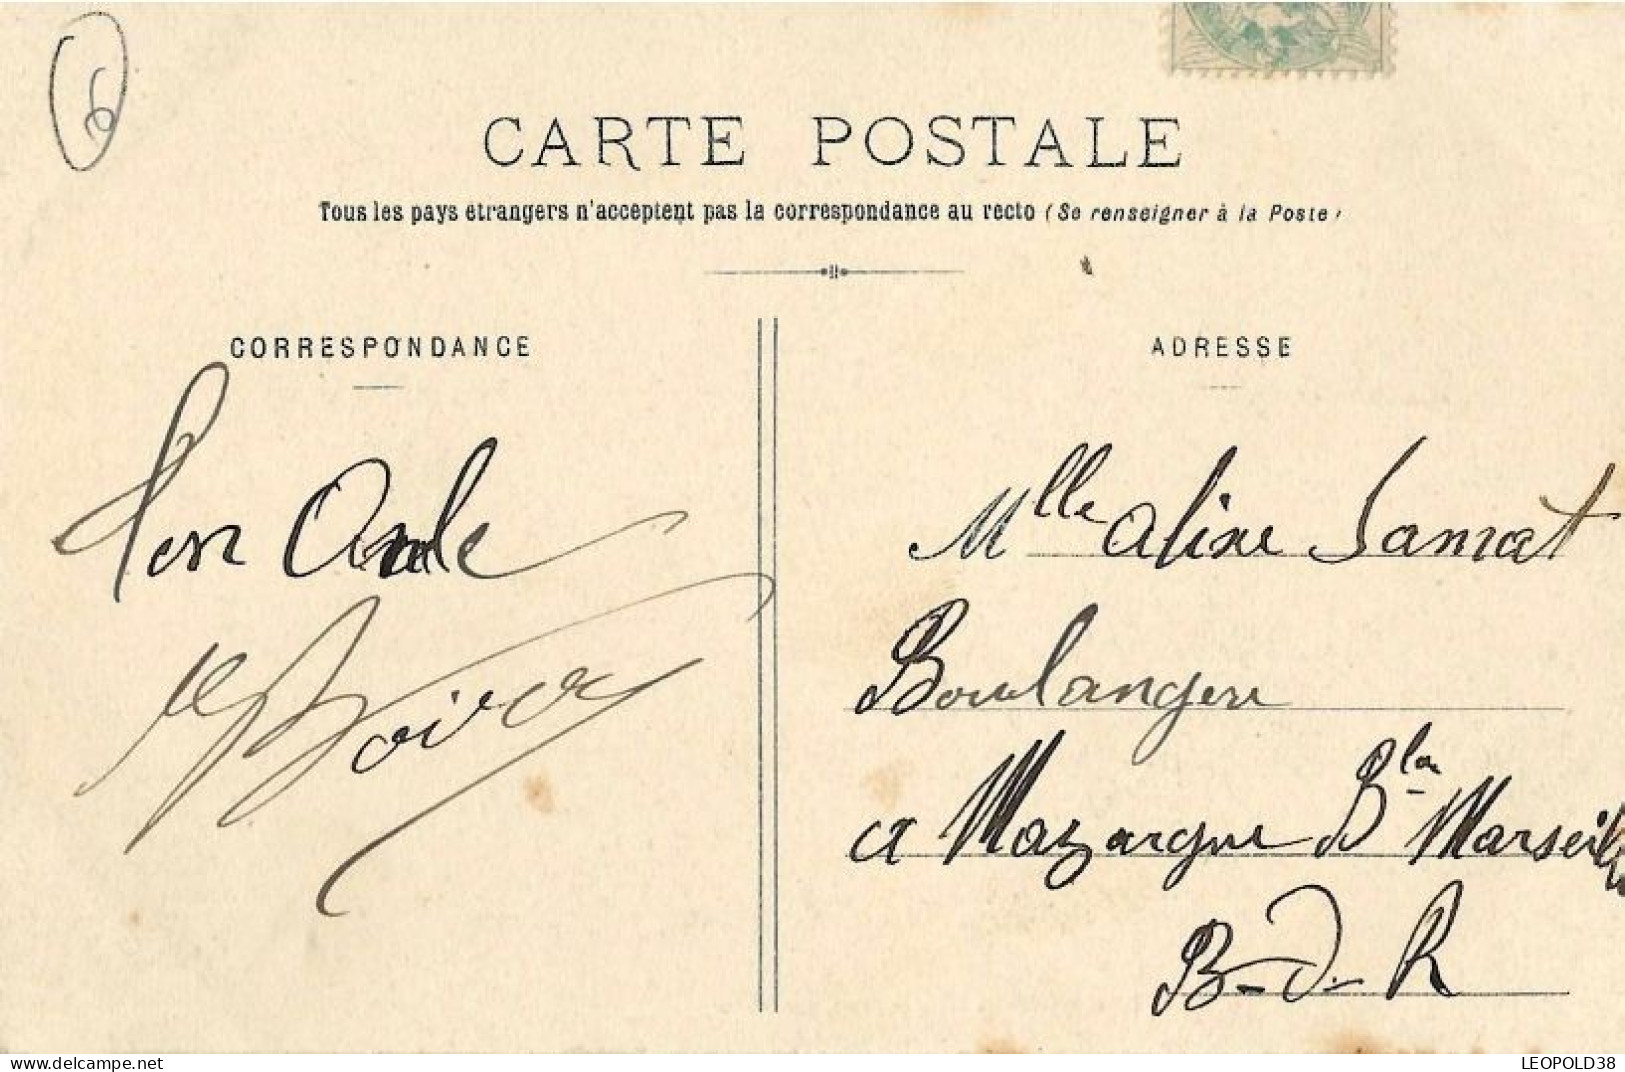 6
CARTE POSTALE
Tous les pays étrangers n'acceptent pas la correspondance au recto (Se renseigner à la Poste)
CORRESPONDANCE
ADRESSE
Ton Oncle
Mlle Aline Samat
Boulangere
a Mazargue Bd Marseille
B-d-R
www.delcampe.net
LEOPOLD38